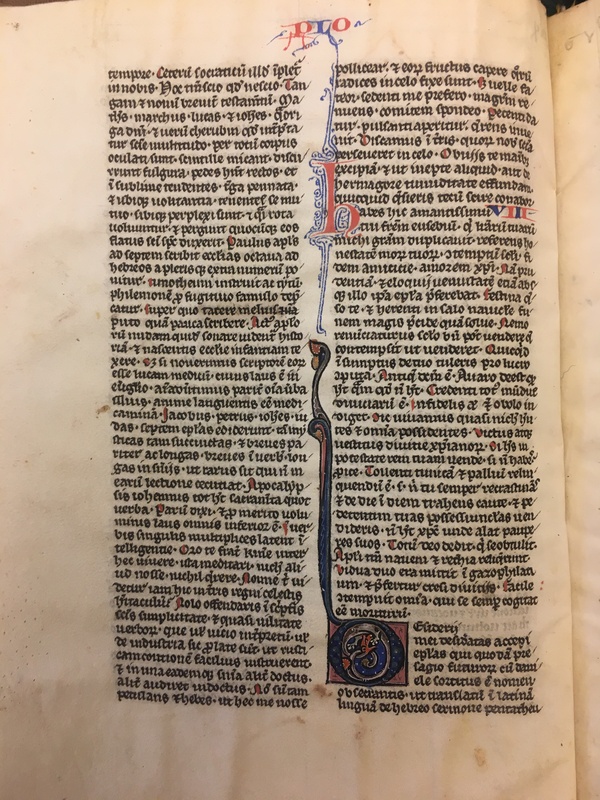 PLO
tempore. Ceterū socraticū illd̄ īplet᷑
in nobis. Hoc tm̄ scio qd̄ nescio. Tan
gam & nouū breuit̄ testam̄tū. Ma
th̄s. marchus. lucas. & ioh̄es. q̄dri
ga dn̄i. & uerū cherubin
tur sc̄ie multitudo. per totū corpus
oculati sunt. scintille micant. discu
rrunt fulgura. pedes h̄nt rectos. et
ī sublime tendentes. t̄ga pennata.
& ubiq; uolitantia. tenent se mu
tuo. sibiq; perplexi sunt. & q̄i rota
uoluunt᷑. & pergunt quocūq; eos
flatus sc̄i sp̄c duxerit. Paulus ap̄ls
ad septem scribit ecclias octaua ad
hebreos a pleris q; extra numerū po
nitur. timotheum instruit ac tytū.
philemonē p̱ fugitiuo famulo dep̄
catur. super quo tacere melius
puto quā pauca scribere. Act᷑ ap̄lo
rū nudam quid̄ sonare uident᷑ histo
riā. & nascentis ecclie infantiam te
xere. si nouerimus scriptorē eor̄
esse lucam medicū. cuius laus ē in
euḡlio. aīaduertimus parit̄ oīa uba
illius. anime languentis ēē medi
camina. Jacobus. petrus. ioh̄es. iu
das. septem ep̄las ediderunt. tā my
sticas tam succinctas. & breues pa
riter ac longas. breues ī uerb. lon
gas in sn̄ijs. ut rarus sit qui n̄ in
earū lectione cecutiat. Apocalyp
sis iohannis tot h̄t sacram̄ta quot
uerba. Parū dixi. & p̱ merito uolu
minis laus omnis inferior ē. In uer
bis singulis multiplices latent ī
telligentie. Oro te frat̄ kme inter
hec uiuere. ista meditari. nich̄ ali
ud nosse. nichil q̄rere. Nonne t̄ ui
detur iam hic in t̄ris regni celestis
h̄itaculū? Nolo offendaris ī sc̄pt̄is
sc̄is simplicitate. & quasi uilitate
uerbor̄. que ul̓ uicio int̄pretū. ul̓
de industria sic p̱late sūt. ut rusti
cam contionē facilius instruerent.
& in una eademq; sn̄ia alit̄ doctus.
alit̄ audiret indoctus. Nō sū tam
petulans & hebes. ut hec me nosse
pollicear. & eor̄ fructus capere q̄rū
radices in celo fixe sunt. S uelle fa
teor. sedenti me p̱fero. magr̄m re
nuens. comitem spondeo. Petenti da
tur. pulsanti aperitur. q̄rens inue
nit. Discamus ī t̄ris. quor̄ nob̄ sc̄ia
perseueret in celo. Obuijs te maib᷑
excipiā. & ut inepte aliquid. aut de
hermagore tumiditate effundam.
quicquid q̄sieris tecū scire conabor.
Habes hic amantissimū VII
tui frēm eusebiū. q̄ lr̄arū tuarū
michi gr̄am duplicauit. referens ho
nestatē mor̄ tuor̄. ↄtemptū sc̄li. fi
dem amicitie. amorem xp̄i. Nā pru
dentiā. & eloquij uenustatē etiā abs
q; illo ip̄a ep̄la p̄ferebat. Festina q̄
so te. & herenti in salo nauicule fu
nem magis p̄cide quā solue. Nemo
renūciaturus sc̄lo b̄n̄ pōt uendere q̄
contempsit ut uenderet. Quicq̄d
ī sumptus de tuo tuleris pro lucro
ↄputa. Antiq; dc̄m ē. Auaro deest q̄
h̄t q̄m qd̄ n̄ h̄t. Credenti tot᷑ mūdus
diuitiarū ē. infidelis aū & obolo in
diget. Sic uiuamus quasi nich̄ h̄n
tes & omnia possidentes. Victus atq;
uestitus diuitie xp̄ianor̄. Si h̄s in
potestate rem tuam uende. si n̄ habes
p̱ice. Tollenti tunicā & palliū relin
quendū ē. s n̄ tu semper recrastinās
& de die ī diem trahens caute. & pe
detentim tuas possessiunclas uen
dideris. n̄ h̄t xp̄c unde alat paupe
res suos. Totū deo dedit q̄ se obtulit.
Ap̄li tm̄ nauem & rethia reliq̄runt.
Vidua duo era mittit ī gazophilati
um. & p̄fertur cresi diuitijs. Facile
ↄtempnit omīa. qui se semp̱ cogitat
ēē moriturū.
Desiderij
mei desid̄ratas accepi
ep̄las qui quodā pre
sagio futuror̄ cū dani
ele sortitus ē nomen
obsecrantis. ut translatū ī latinā
linguā de hebreo sermone pentatheu